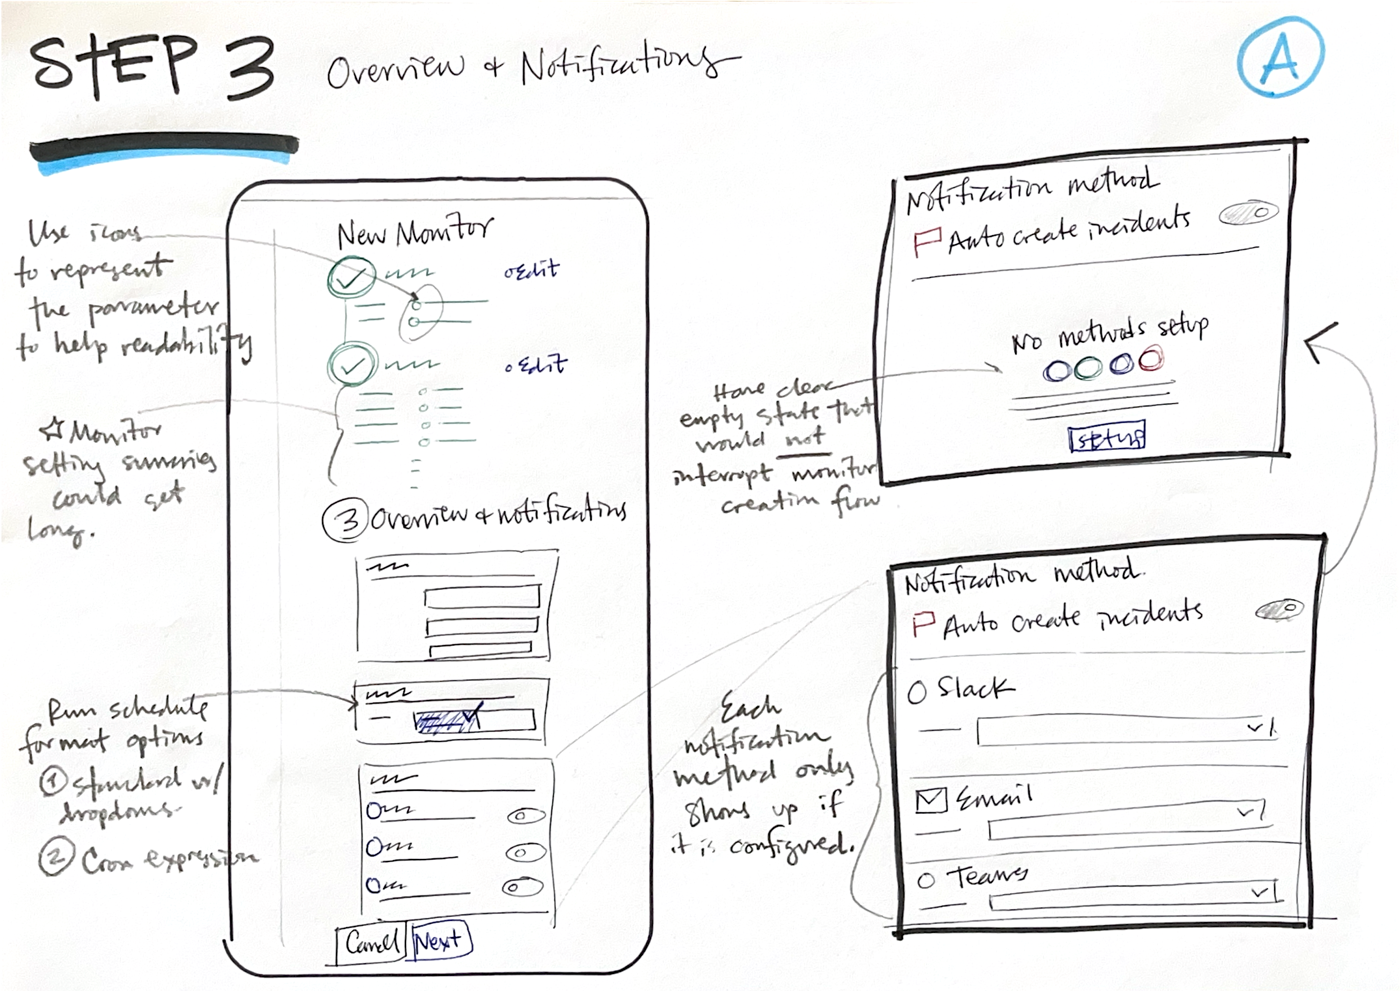 STEP 3 Overview & Notifications
A
Use icons
to represent
the parameter
to help readability
☆ Monitor
setting summaries
could get
long.
Run schedule
format options
① Standard w/
dropdowns.
② Cron expression
New Monitor
Edit
Edit
③ Overview & notifications
Cancel Next
Have clear
empty state that
would not
interrupt monitor
creation flow
Each
notification
method only
shows up if
it is configured.
Notification method
Auto create incidents
No methods setup
setup
Notification method.
Auto create incidents
Slack
Email
Teams